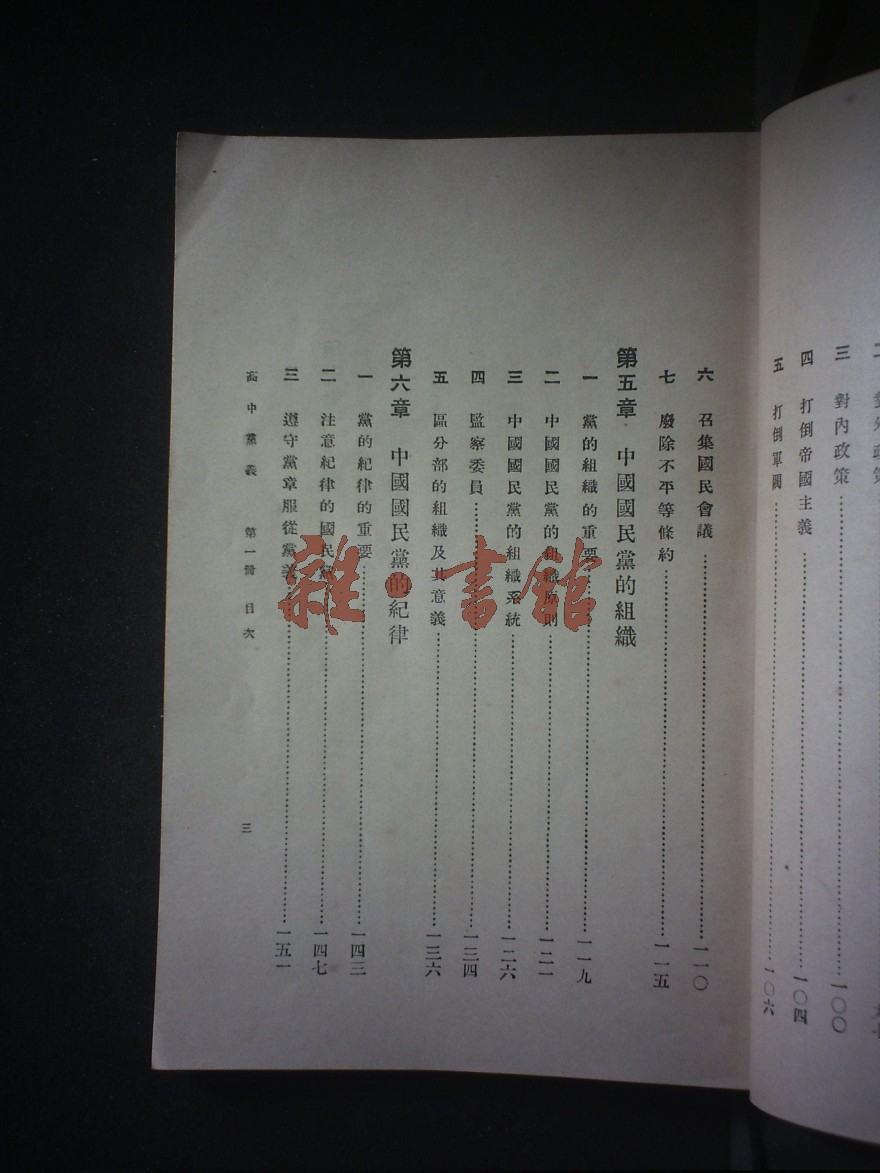 對外政策
三 對內政策 一〇〇
四 打倒帝國主義 一〇四
五 打倒軍閥 一〇六
六 召集國民會議 一一〇
七 廢除不平等條約 一一五
第五章 中國國民黨的組織
一 黨的組織的重要 一一九
二 中國國民黨的組織原則 一二一
三 中國國民黨的組織系統 一二六
四 監察委員 一三四
五 區分部的組織及其意義 一三六
第六章 中國國民黨的紀律
一 黨的紀律的重要 一四三
二 注意紀律的國民黨 一四七
三 遵守黨章服從黨義 一五一
高中黨義 第一冊 目次 三
雜·書館